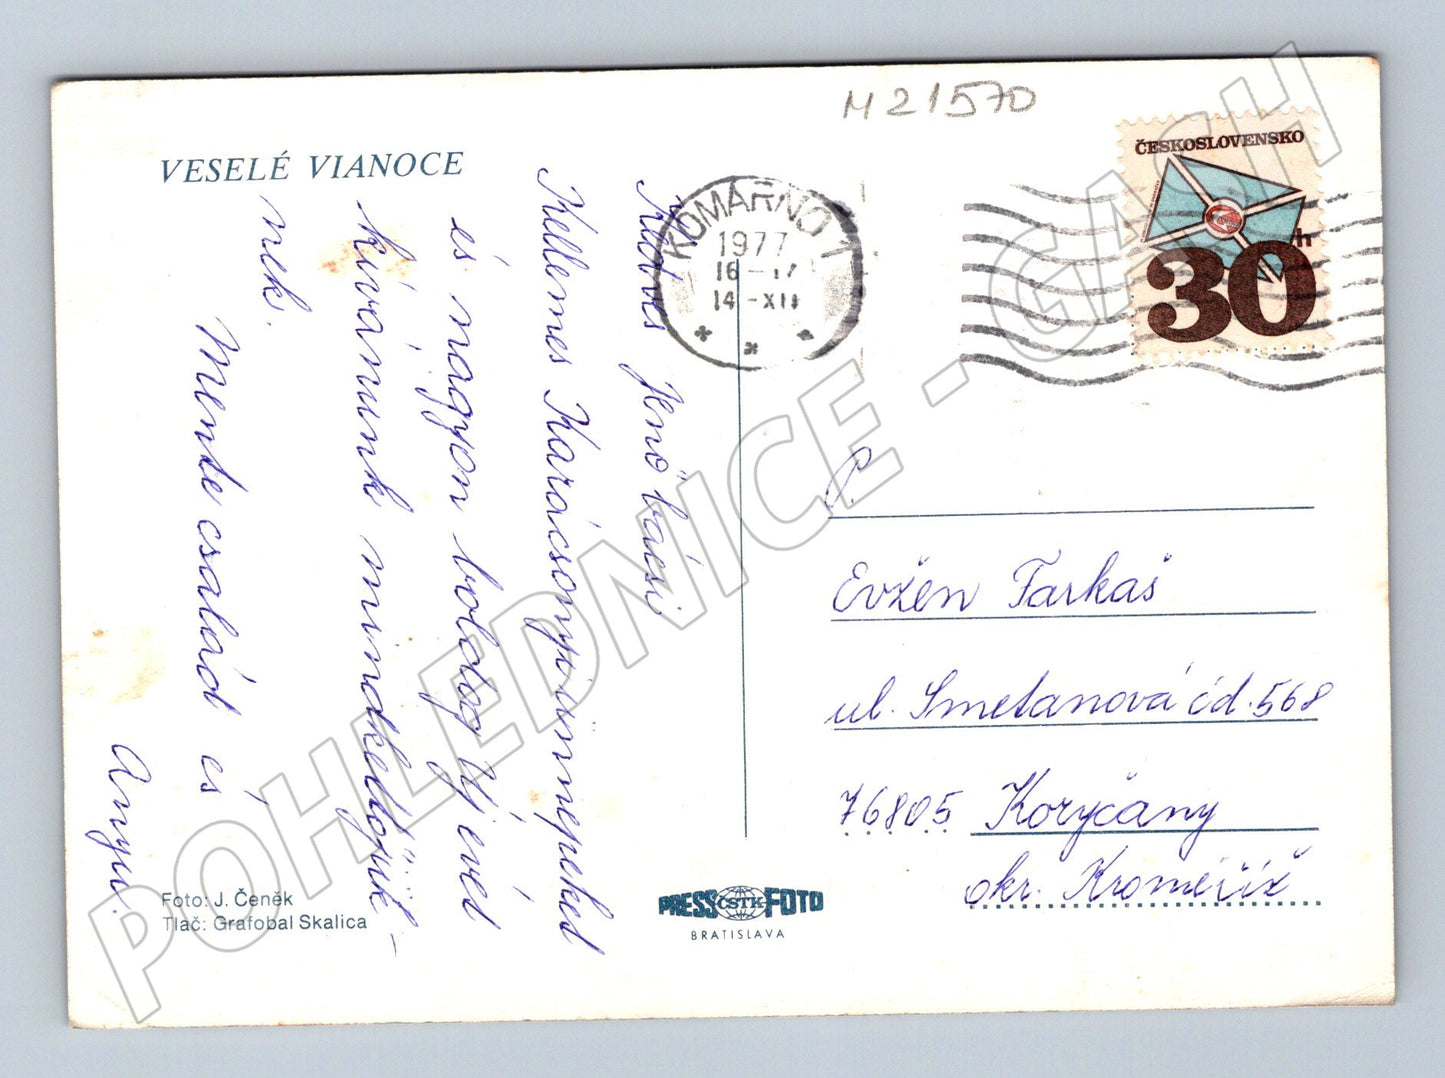 M 21570
VESELÉ VIANOCE
Kedves Jenő bácsi
Kellemes Karácsonyi ünnepeket
és nagyon boldog új évet
kívánunk mindkettőjük-
nek.
család és
Anyu.
KOMÁRNO 1
1977
14-XII
ČESKOSLOVENSKO
30 h
P.
Evžen Farkaš
ul. Smetanová čd. 568
76805 Koryčany
okr. Kroměříž
Foto: J. Čeněk
Tlač: Grafobal Skalica
PRESS ČSTK FOTO
BRATISLAVA
POHLEDNICE - GASH